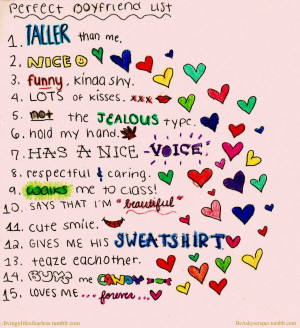 Perfect Boyfriend List
1. TALLER than me.
2. NICE
3. funny, kinda shy.
4. LOTS of kisses. xxx
5. not the JEALOUS type.
6. hold my hand.
7. HAS A NICE -VOICE-
8. respectful & caring.
9. walks me to class!
10. SAYS THAT I'M "beautiful"
11. cute smile.
12. GIVES ME HIS SWEATSHIRT
13. teaze eachother.
14. BUYS me CANDY
15. LOVES ME... forever...